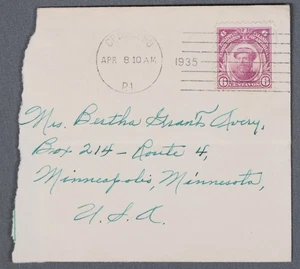 APR 8 10 AM
1935
P.I.
6 6
Mrs. Bertha Grant Avery,
Box 214 - Route 4,
Minneapolis, Minnesota,
U. S. A.